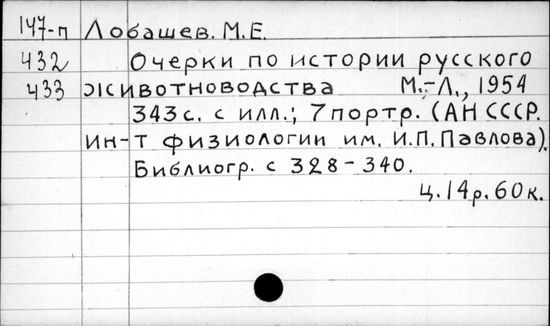 147-п Лобашев. М.Е.
432 Очерки по истории русского
433 животноводства М.-Л., 1954
343с. с илл.; 7 портр. (АН СССР.
Ин-т физиологии им. И.П.Павлова).
Библиогр. с 328-340.
ц. 14р. 60к.